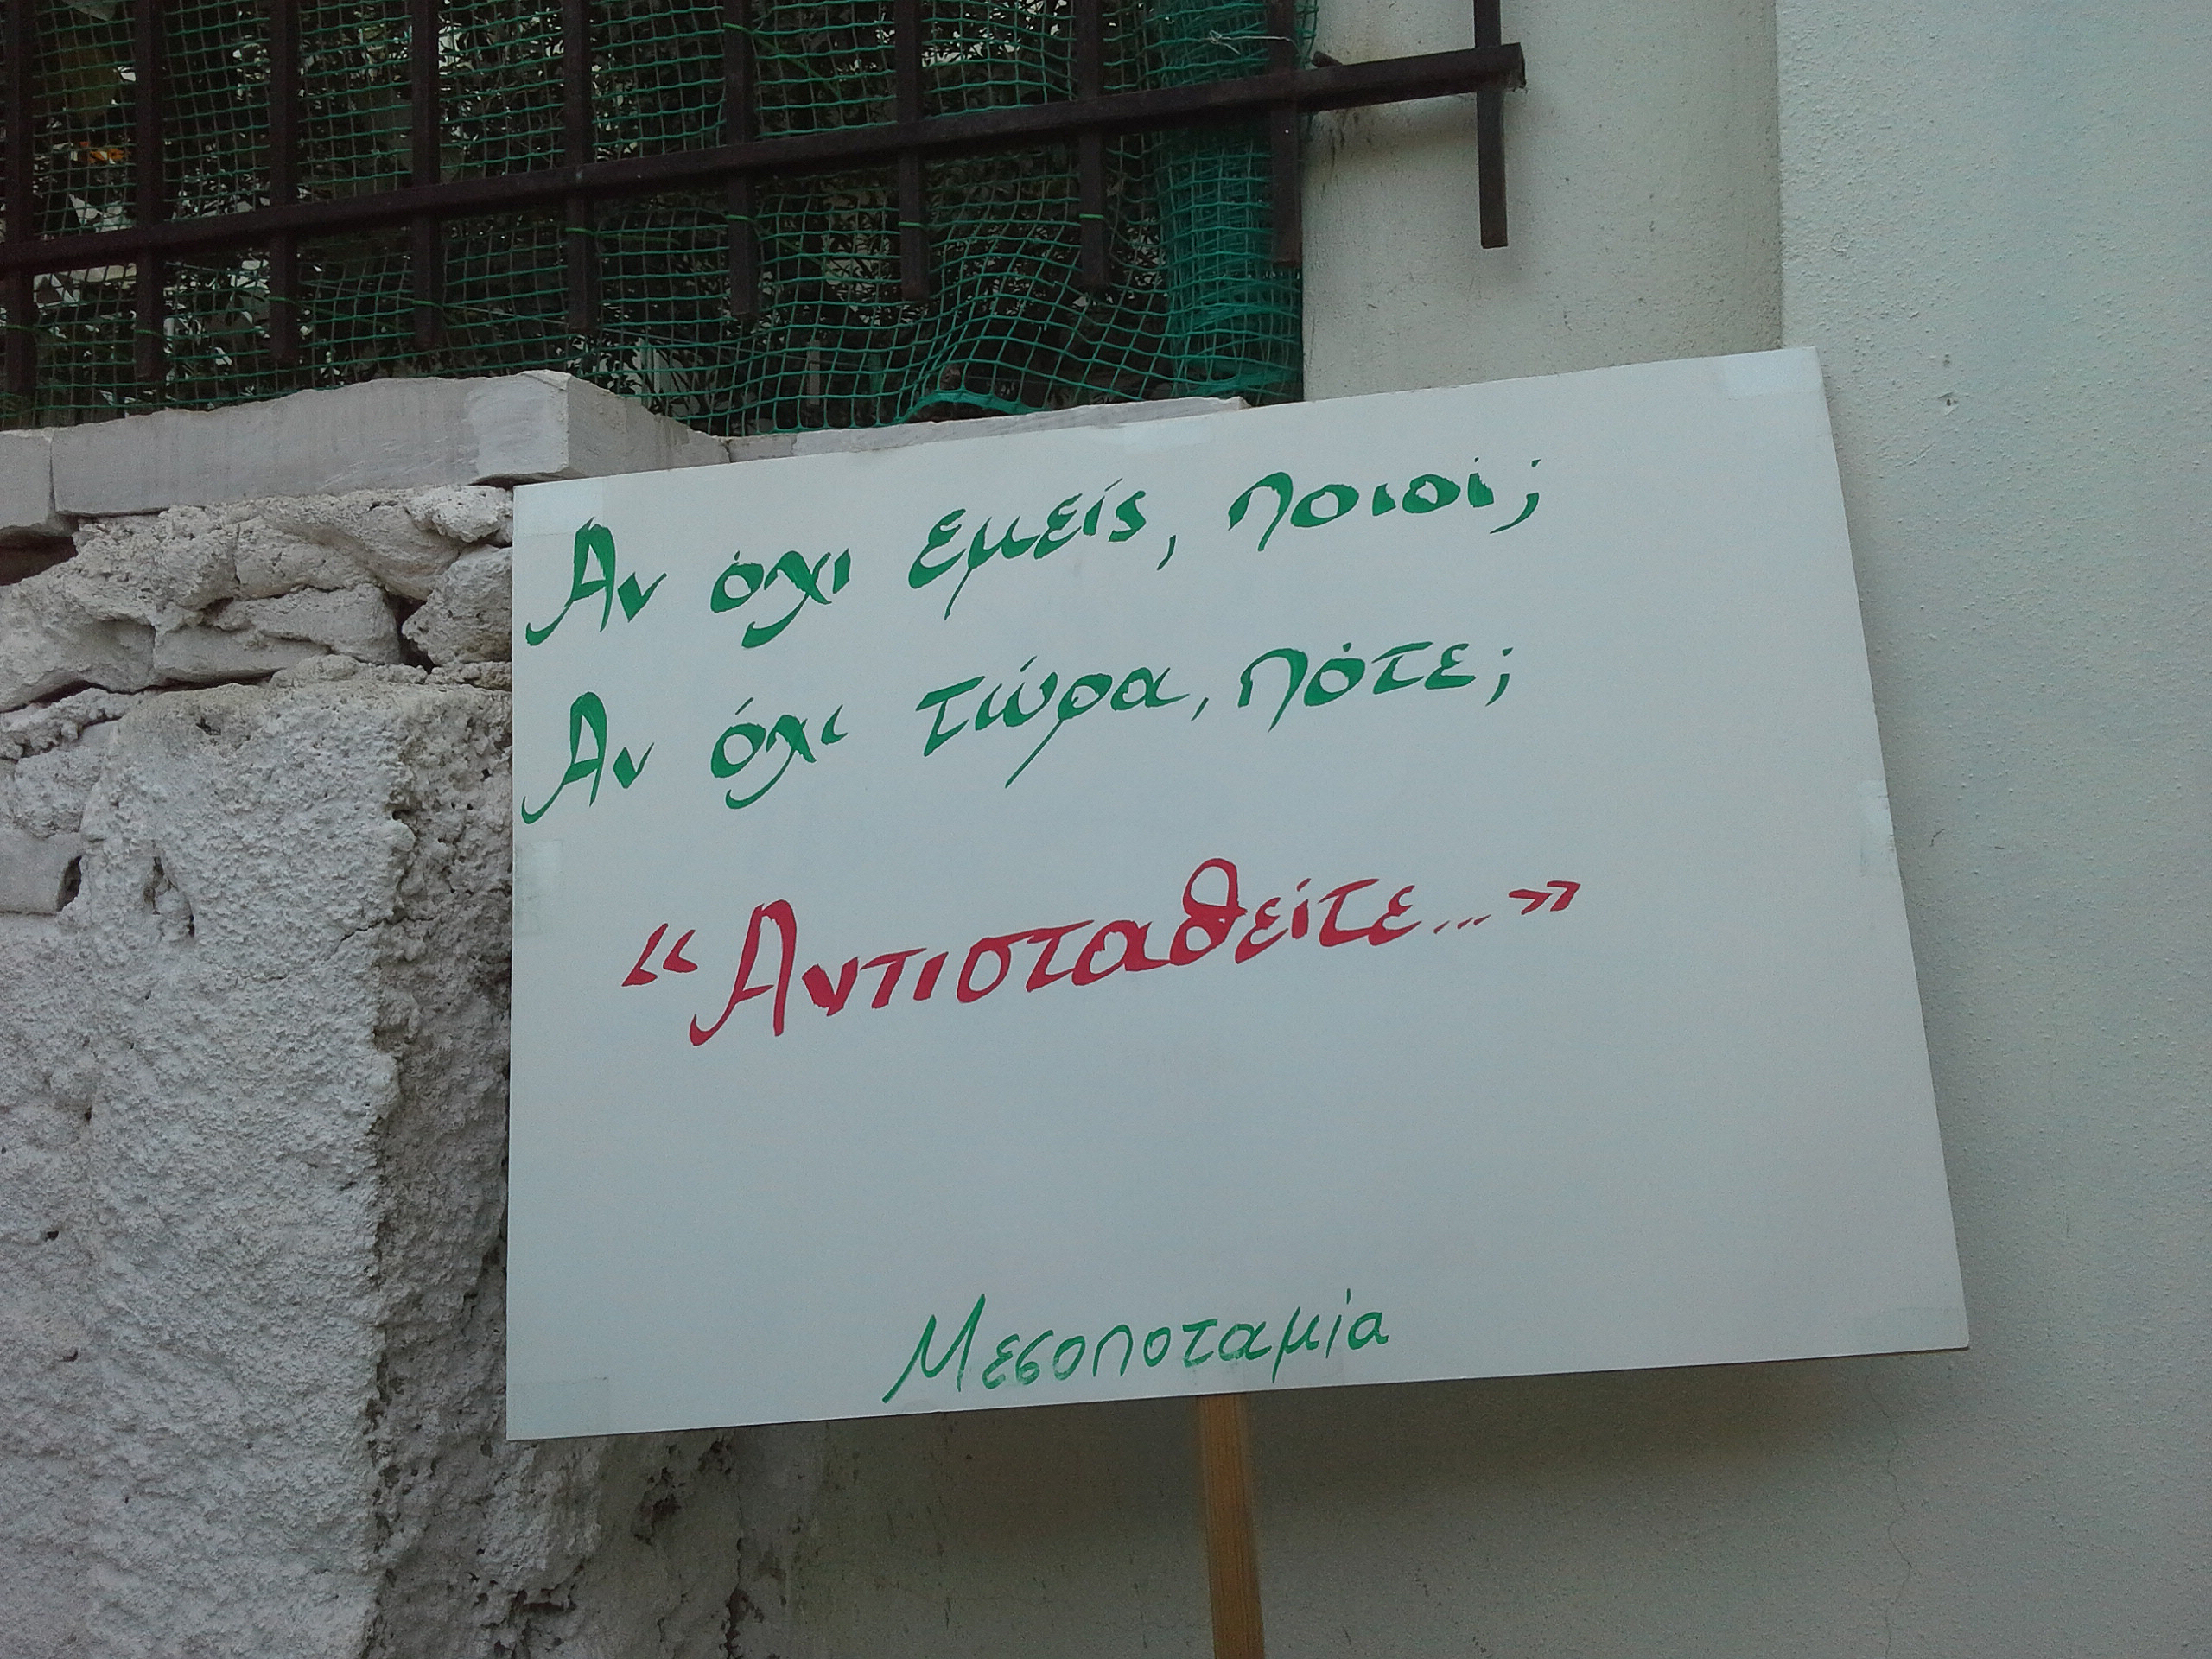 Αν όχι εμείς, ποιοί;
Αν όχι τώρα, πότε;
“Αντισταθείτε...»
Μεσοποταμία